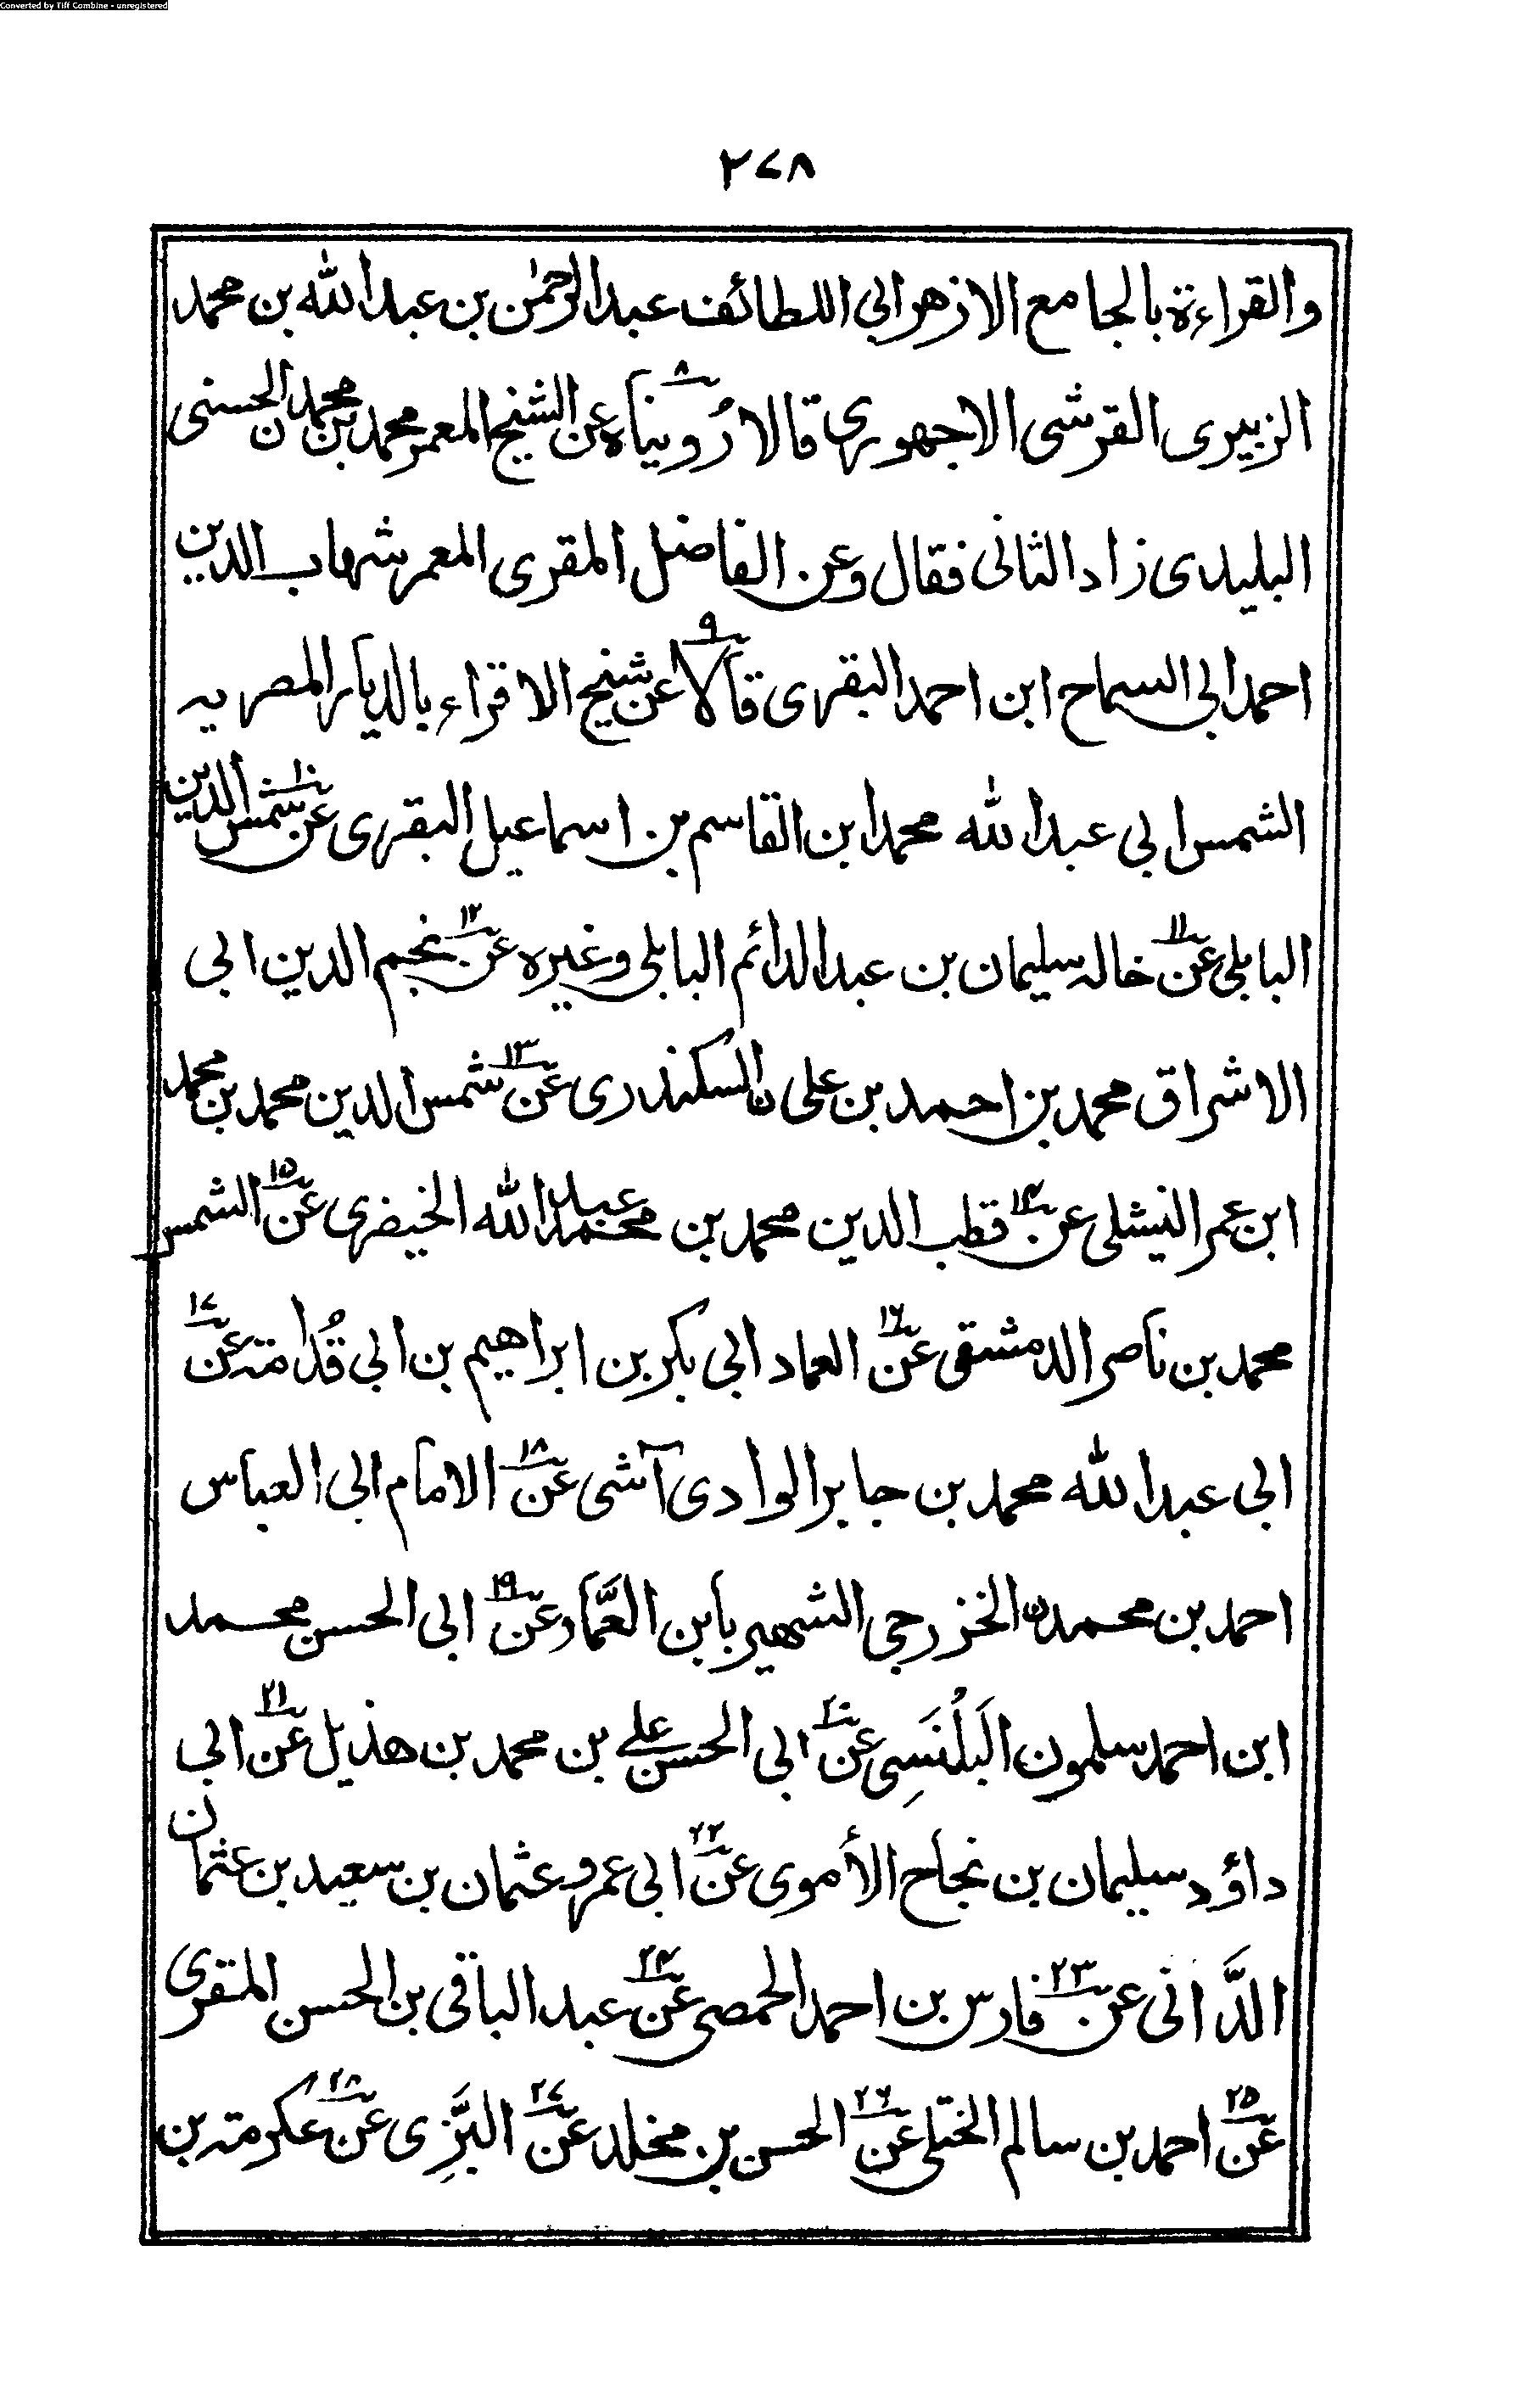 Converted by Tiff Combine - unregistered
۲۷۸
والقراءة بالجامع الازهر ابى اللطائف عبد الرحمٰن بن عبد الله بن محمد
الزبيرى القرشى الاجهورى قالا رُوِيناه ۸ عن الشيخ المعمر محمد بن محمدن الحسنى
البليدى زاد الثانى فقال وعن الفاضل المقرى المعمر شهاب الدين
احمد ابى السماح ابن احمد البقرى قالا ۹ عن شيخ الاقراء بالديار المصريه
الشمس ابى عبد الله محمد ابن القاسم بن اسماعيل البقرى ۱۰ عن شمس الدين
البابلى ۱۱ عن خاله سليمان بن عبد الدائم البابلى وغيره ۱۲ عن نجم الدين ابى
الاشراق محمد بن احمد بن على ن السكندرى ۱۳ عن شمس الدين محمد بن محمد
ابن عمر النيشلى ۱۴ عن قطب الدين محمد بن محمد عبد الله الخيضرى ۱۵ عن الشمس
محمد بن ناصر الدمشقى ۱۶ عن العماد ابى بكر بن ابراهيم بن ابى قُدامة ۱۷ عن
ابى عبد الله محمد بن جابر الوادى آشى ۱۸ عن الامام ابى العباس
احمد بن محمد ن الخزرجى الشهير بابن العَمَّاد ۱۹ عن ابى الحسن محمد
ابن احمد سلمون البَلَنْسِى ۲۰ عن ابى الحسن على بن محمد بن هذيل ۲۱ عن ابى
داؤد سليمان بن نجاح الأموى ۲۲ عن ابى عمرو عثمان بن سعيد بن عثمان
الدَّانى ۲۳ عن فارس بن احمد الحمصى ۲۴ عن عبد الباقى بن الحسن المقرى
۲۵ عن احمد بن سالم الختلى ۲۶ عن الحسن بن مخلد ۲۷ عن البَزِّى ۲۸ عن عكرمة بن